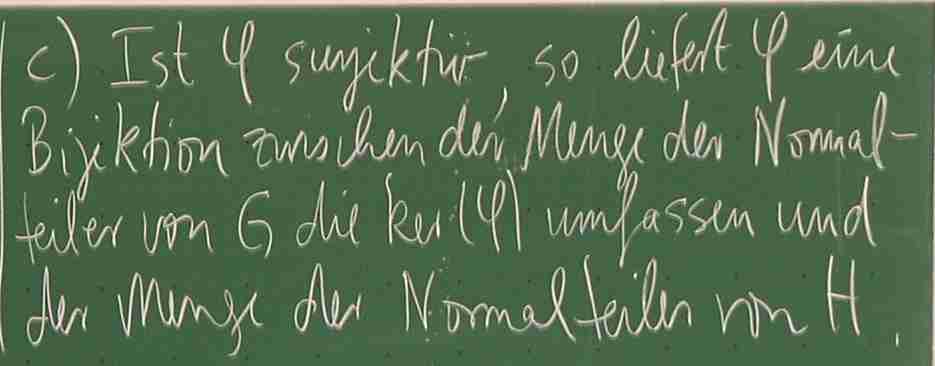 c) Ist φ surjektiv, so liefert φ eine
Bijektion zwischen der Menge der Normal-
teiler von G die ker(φ) umfassen und
der Menge der Normalteiler von H.